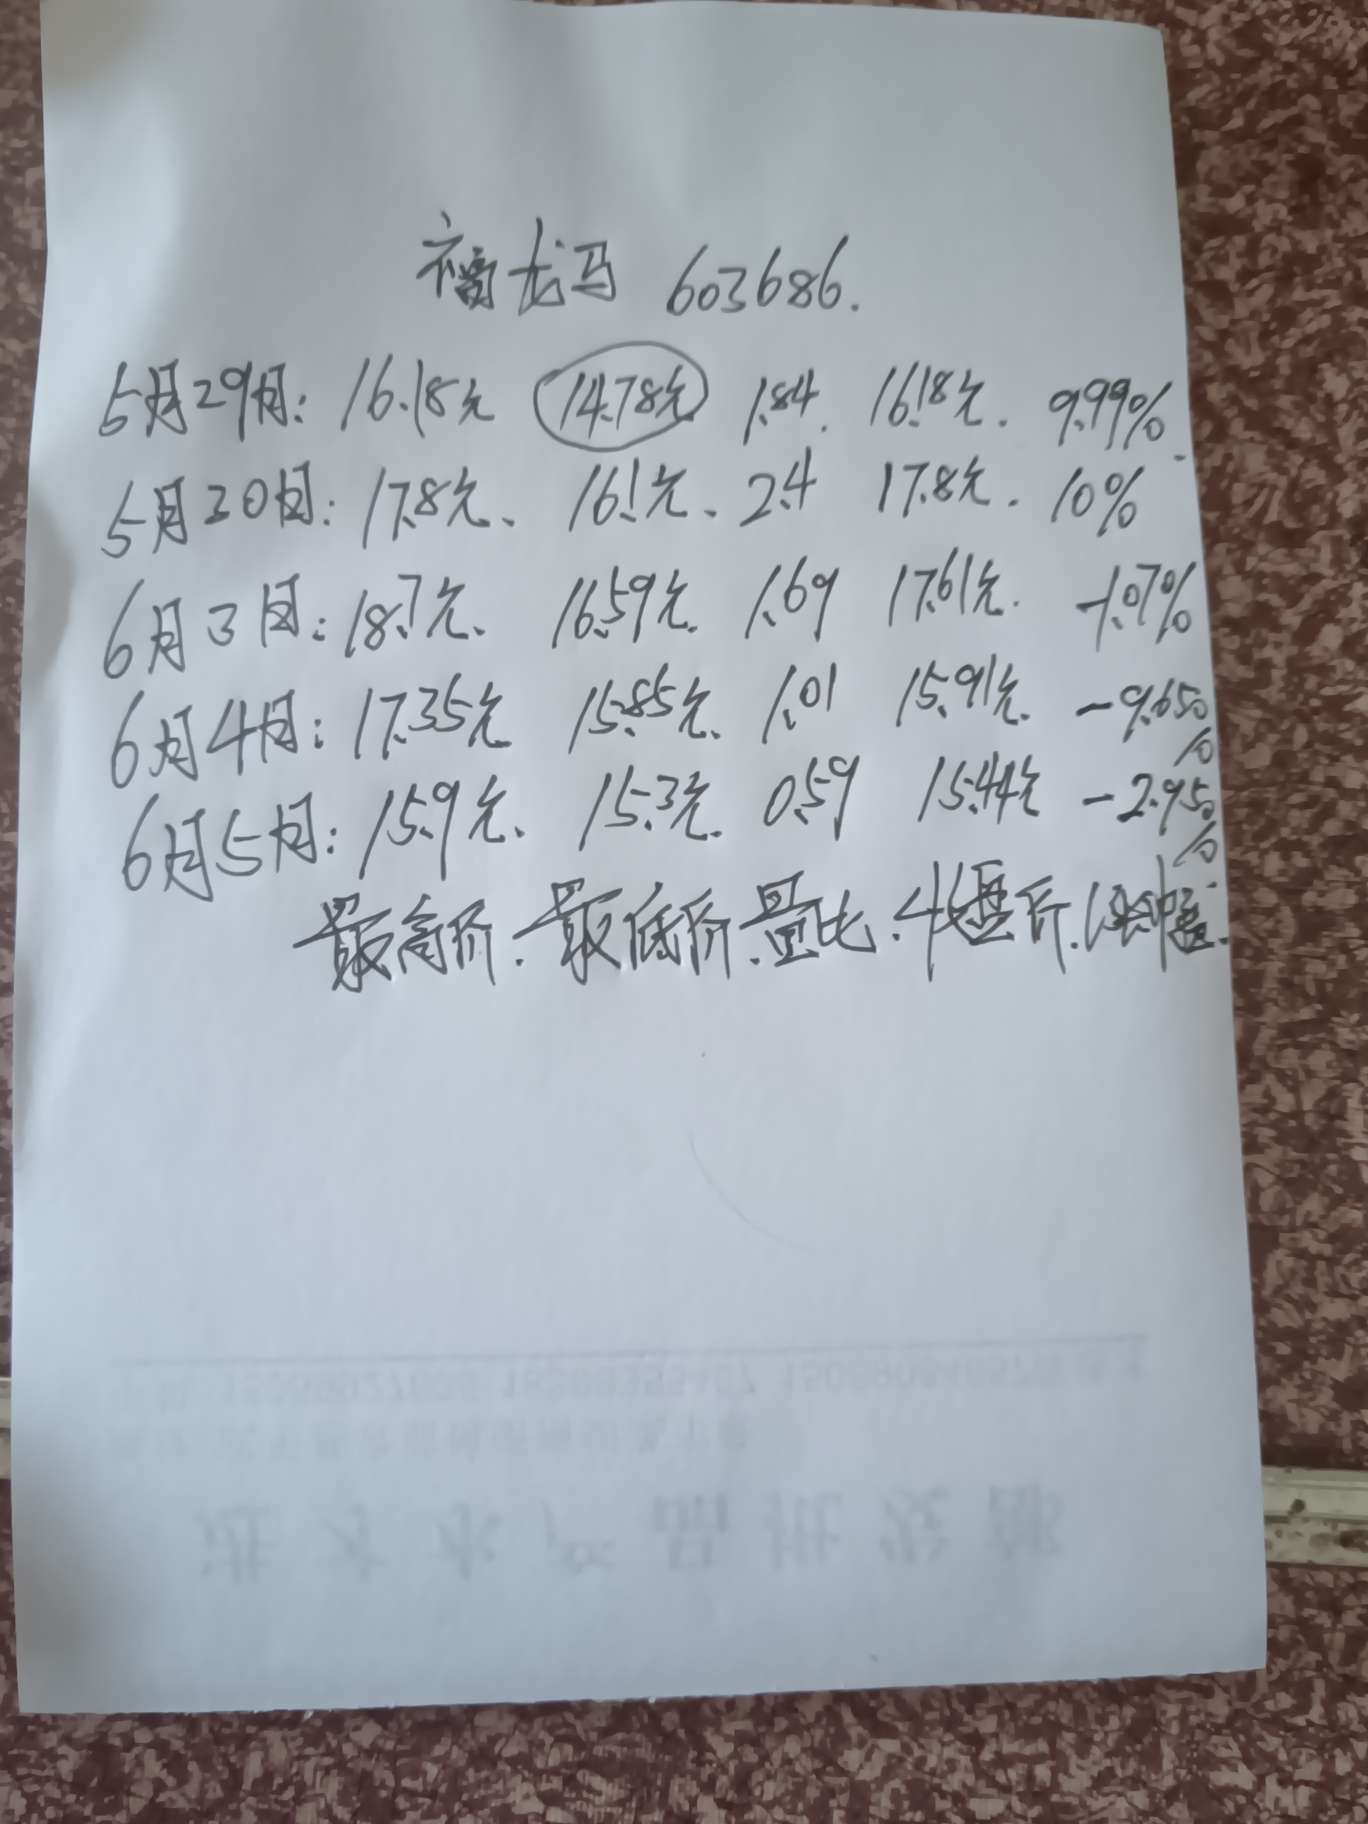 福龙马 603686.
5月29日: 16.18元 14.78元 1.84. 16.18元. 9.99%.
5月30日: 17.8元、 16.1元、 2.4 17.8元. 10%
6月3日: 18.7元、 16.59元. 1.69 17.61元. -1.07%
6月4日: 17.35元 15.85元、 1.01 15.91元. -9.65%
6月5日: 15.9元、 15.3元. 0.59 15.44元 -2.95%
最高价. 最低价. 量比. 收盘价. 涨幅.